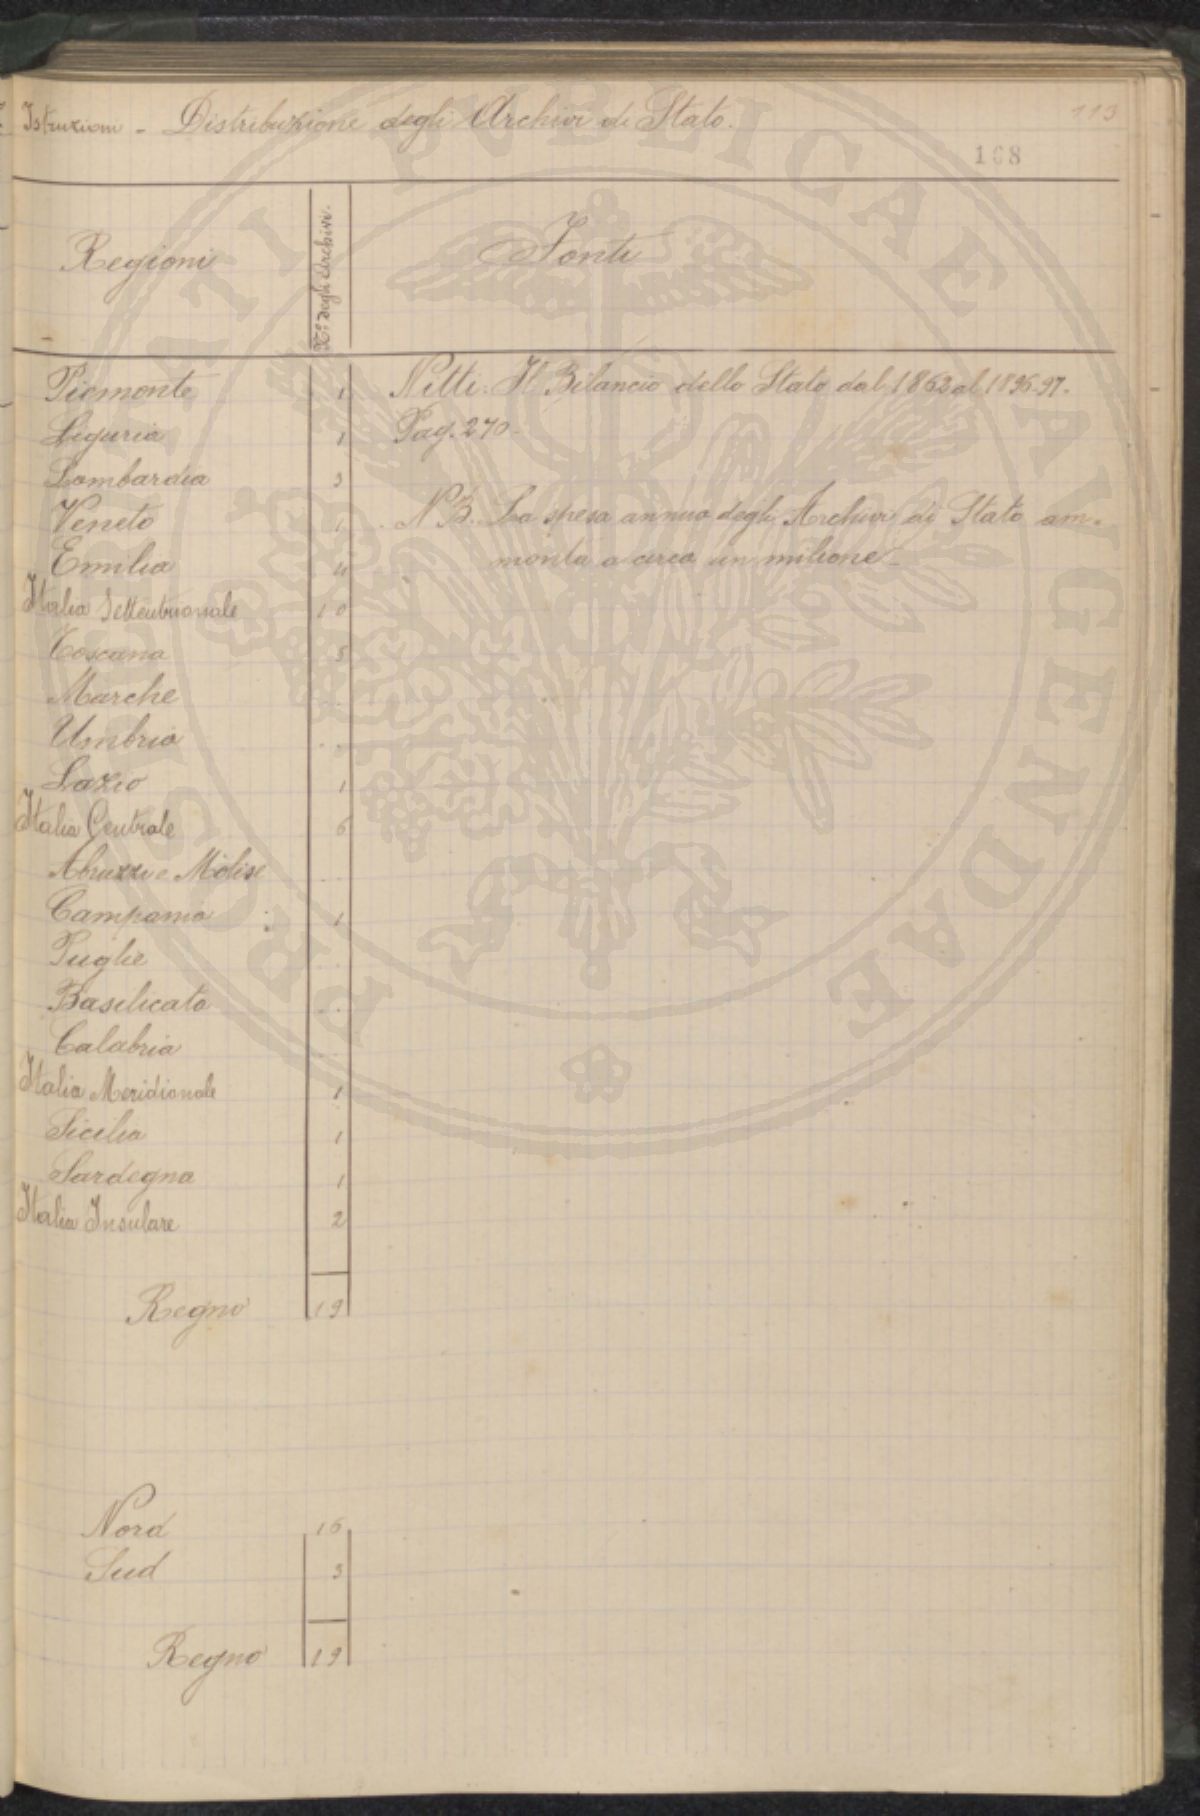 Istruzioni - Distribuzione degli Archivi di Stato.
113
168
Regioni
N.º degli Archivi.
Fonti
Piemonte 1 Nitti. Il Bilancio dello Stato dal 1862 al 1896-97.
Liguria 1 Pag. 270 -
Lombardia 3
Veneto 1 NB. La spesa annua degli Archivi di Stato am-
Emilia 4 monta a circa un milione -
Italia Settentrionale 10
Toscana 5
Marche . .
Umbria . .
Lazio 1
Italia Centrale 6
Abruzzi e Molise . .
Campania 1
Puglie . .
Basilicata . .
Calabria . .
Italia Meridionale 1
Sicilia 1
Sardegna 1
Italia Insulare 2
Regno 19
Nord 16
Sud 3
Regno 19
PUBLICAE AVGENDAE